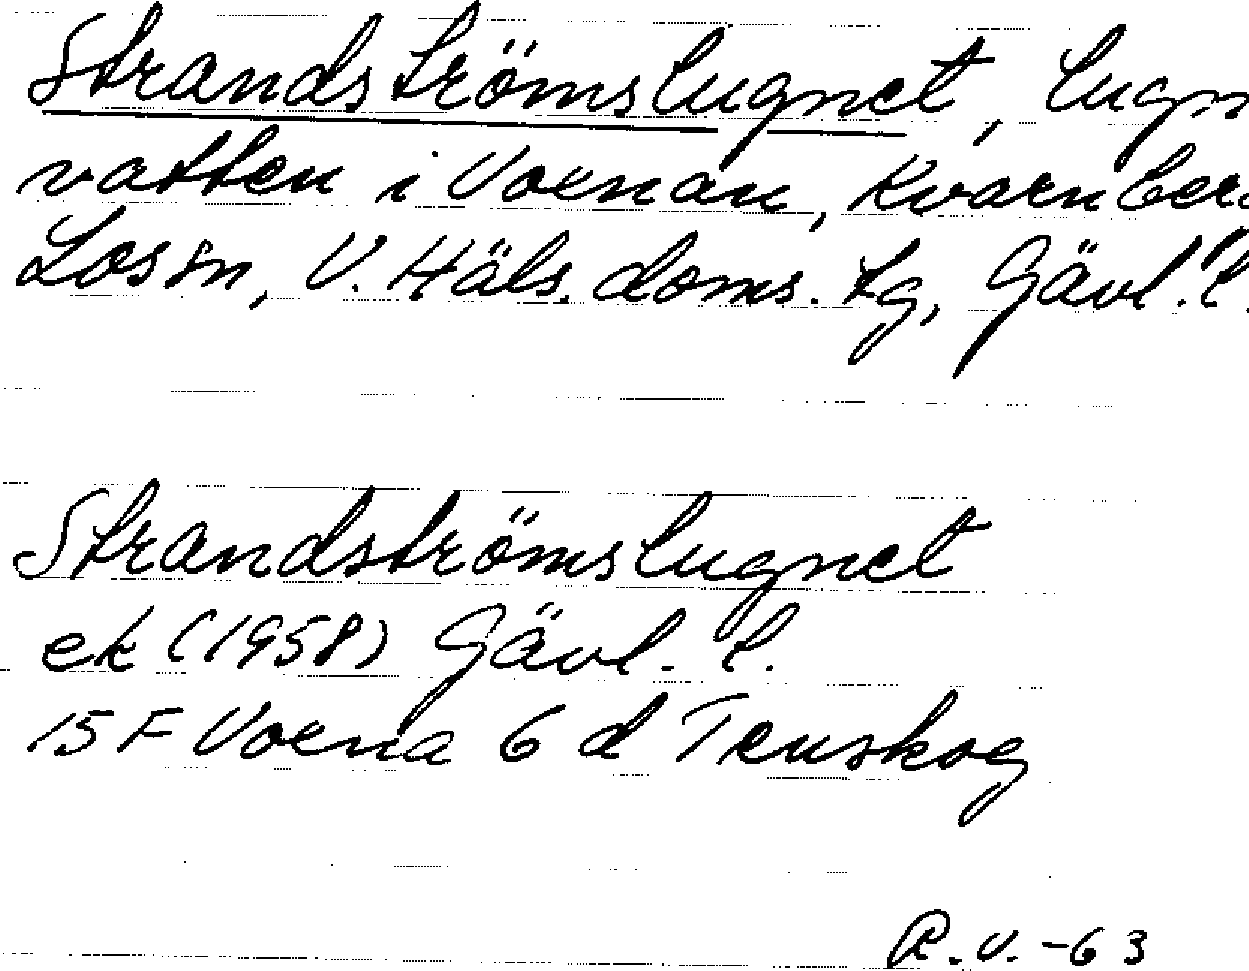 Strandströmslugnet, lugn
vatten i Voxnan, Kvarnber
Los sn, V. Häls. doms. tg, Gävl. l.
Strandströmslugnet
ek (1958) Gävl. l.
15 F Voxna 6 d Tenskog
R.V. -63